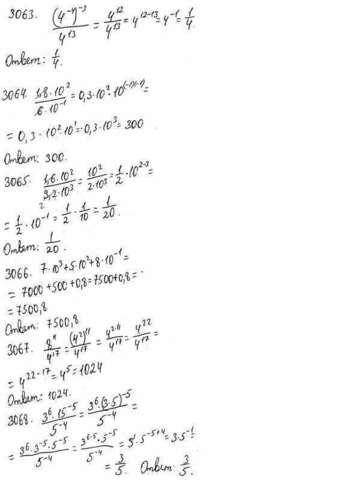 3063. (4⁻⁴)⁻³/4¹³ = 4¹²/4¹³ = 4¹²⁻¹³ = 4⁻¹ = 1/4.
Ответ: 1/4.
3064. 1,8·10²/6·10⁻¹ = 0,3·10²·10^(-1)(-1) =
= 0,3·10²·10¹ = 0,3·10³ = 300
Ответ: 300.
3065. 1,6·10²/3,2·10³ = 10²/2·10³ = 1/2·10²⁻³ =
= 1/2·10⁻¹ = 1/2·1/10 = 1/20.
Ответ: 1/20.
3066. 7·10³+5·10²+8·10⁻¹ =
= 7000+500+0,8 = 7500+0,8 =
= 7500,8
Ответ: 7500,8
3067. 8¹¹/4¹⁷ = (4²)¹¹/4¹⁷ = 4²·¹¹/4¹⁷ = 4²²/4¹⁷ =
= 4²²⁻¹⁷ = 4⁵ = 1024
Ответ: 1024.
3068. 3⁶·15⁻⁵/5⁻⁴ = 3⁶·(3·5)⁻⁵/5⁻⁴ =
= 3⁶·3⁻⁵·5⁻⁵/5⁻⁴ = 3⁶⁻⁵·5⁻⁵/5⁻⁴ = 3¹·5⁻⁵⁺⁴ = 3·5⁻¹ =
= 3/5. Ответ: 3/5.